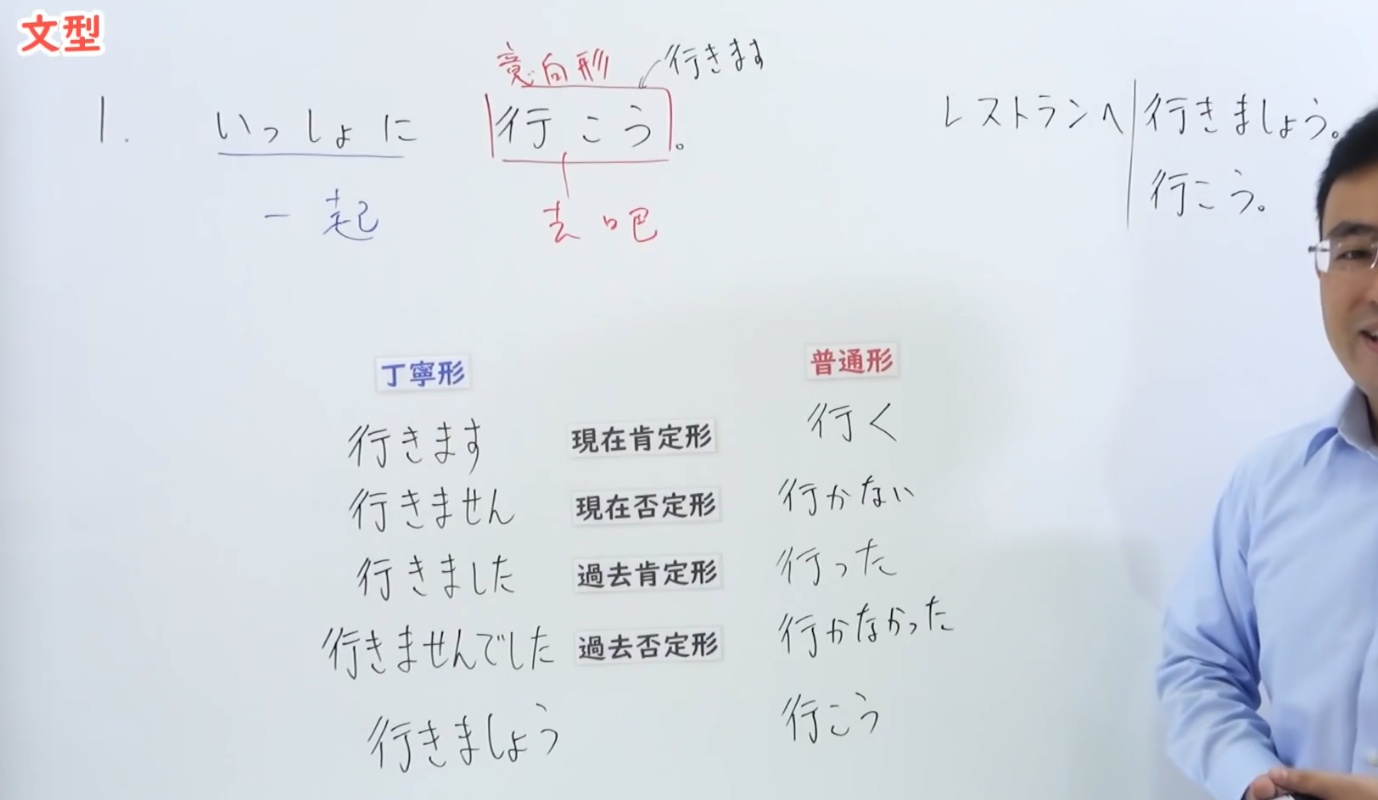 文型
意向形
行きます
1. いっしょに 行こう。
一起 去吧
レストランへ 行きましょう。
行こう。
丁寧形 普通形
行きます 現在肯定形 行く
行きません 現在否定形 行かない
行きました 過去肯定形 行った
行きませんでした 過去否定形 行かなかった
行きましょう 行こう